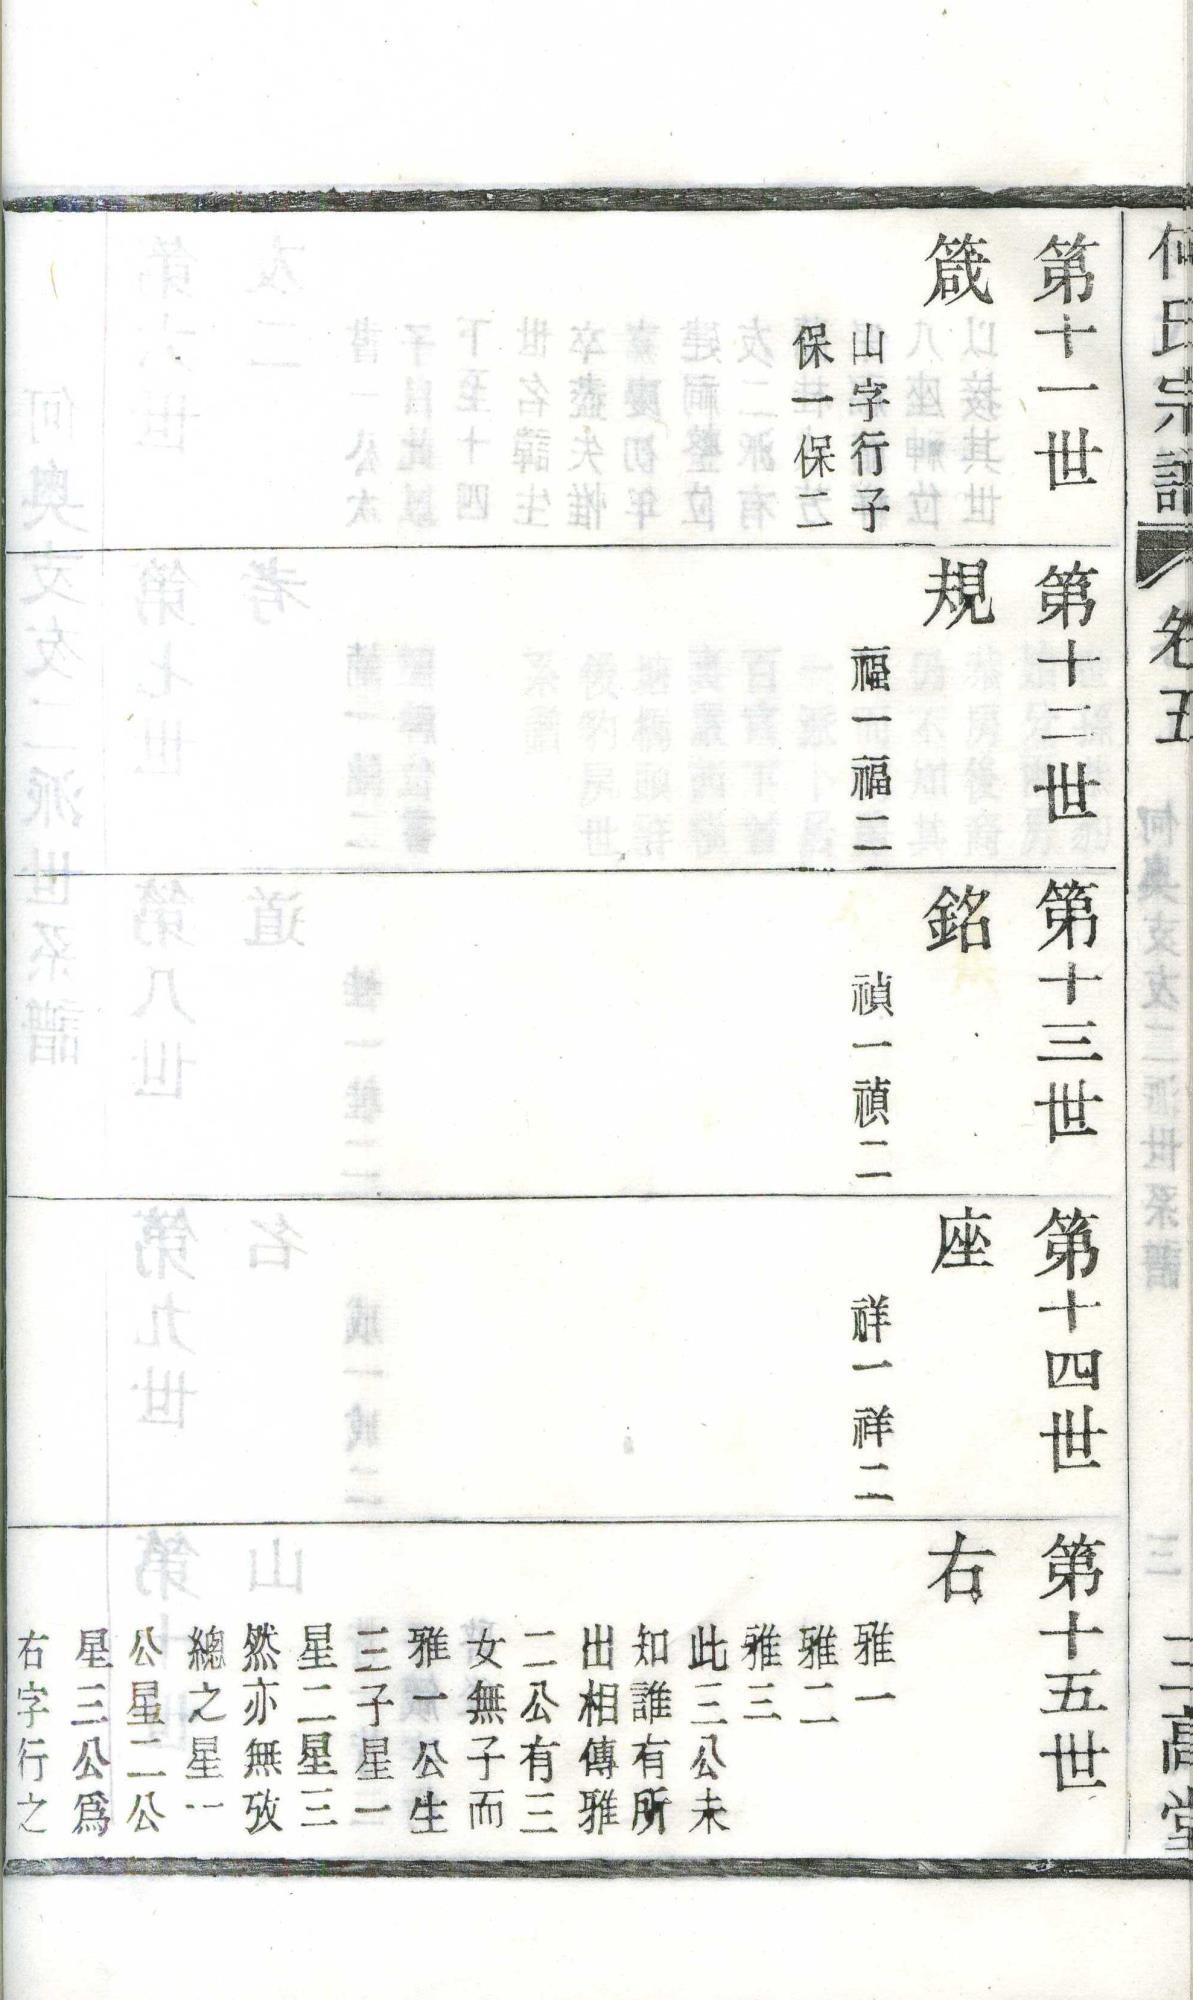 何氏宗譜
卷五
三高堂
第十一世
箴
山字行子
保一保二
第十二世
規
福一福二
第十三世
銘
禎一禎二
第十四世
座
祥一祥二
第十五世
右
雅一
雅二
雅三
此三公未
知誰有所
出相傳雅
二公有三
女無子而
雅一公生
三子星一
星二星三
然亦無攷
總之星一
公星二公
星三公爲
右字行之